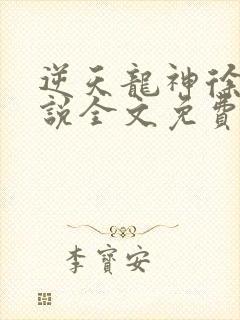 逆天龍神徐
說全文免費
李寶安